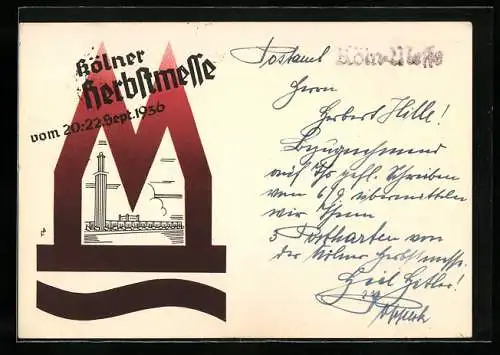 Kölner
Herbstmesse
vom 20:22.Sept.1936
Postamt Köln-Messe
Herrn
Herbert Hille!
Bezugnehmend
auf Ihr gefl. Schreiben
vom 6.9. übermitteln
wir Ihnen
5 Postkarten von
der Kölner Herbstmesse.
Heil Hitler!